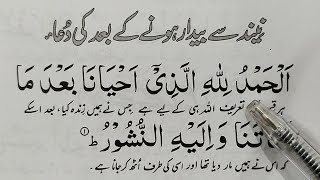 نیند سے بیدار ہونے کے بعد کی دُعاء
اَلْحَمْدُ لِلّٰهِ الَّذِیْٓ اَحْیَانَا بَعْدَ مَا
ہر قسم تعریف اللہ ہی کے لیے ہے جس نے ہمیں زندہ کیا، بعد اسکے
تَنَا وَاِلَیْهِ النُّشُوْرُ ط ①
کہ اس نے ہمیں مار دیا تھا اور اسی کی طرف اُٹھ کر جانا ہے۔